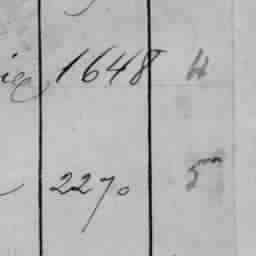 1648 4
2270 5